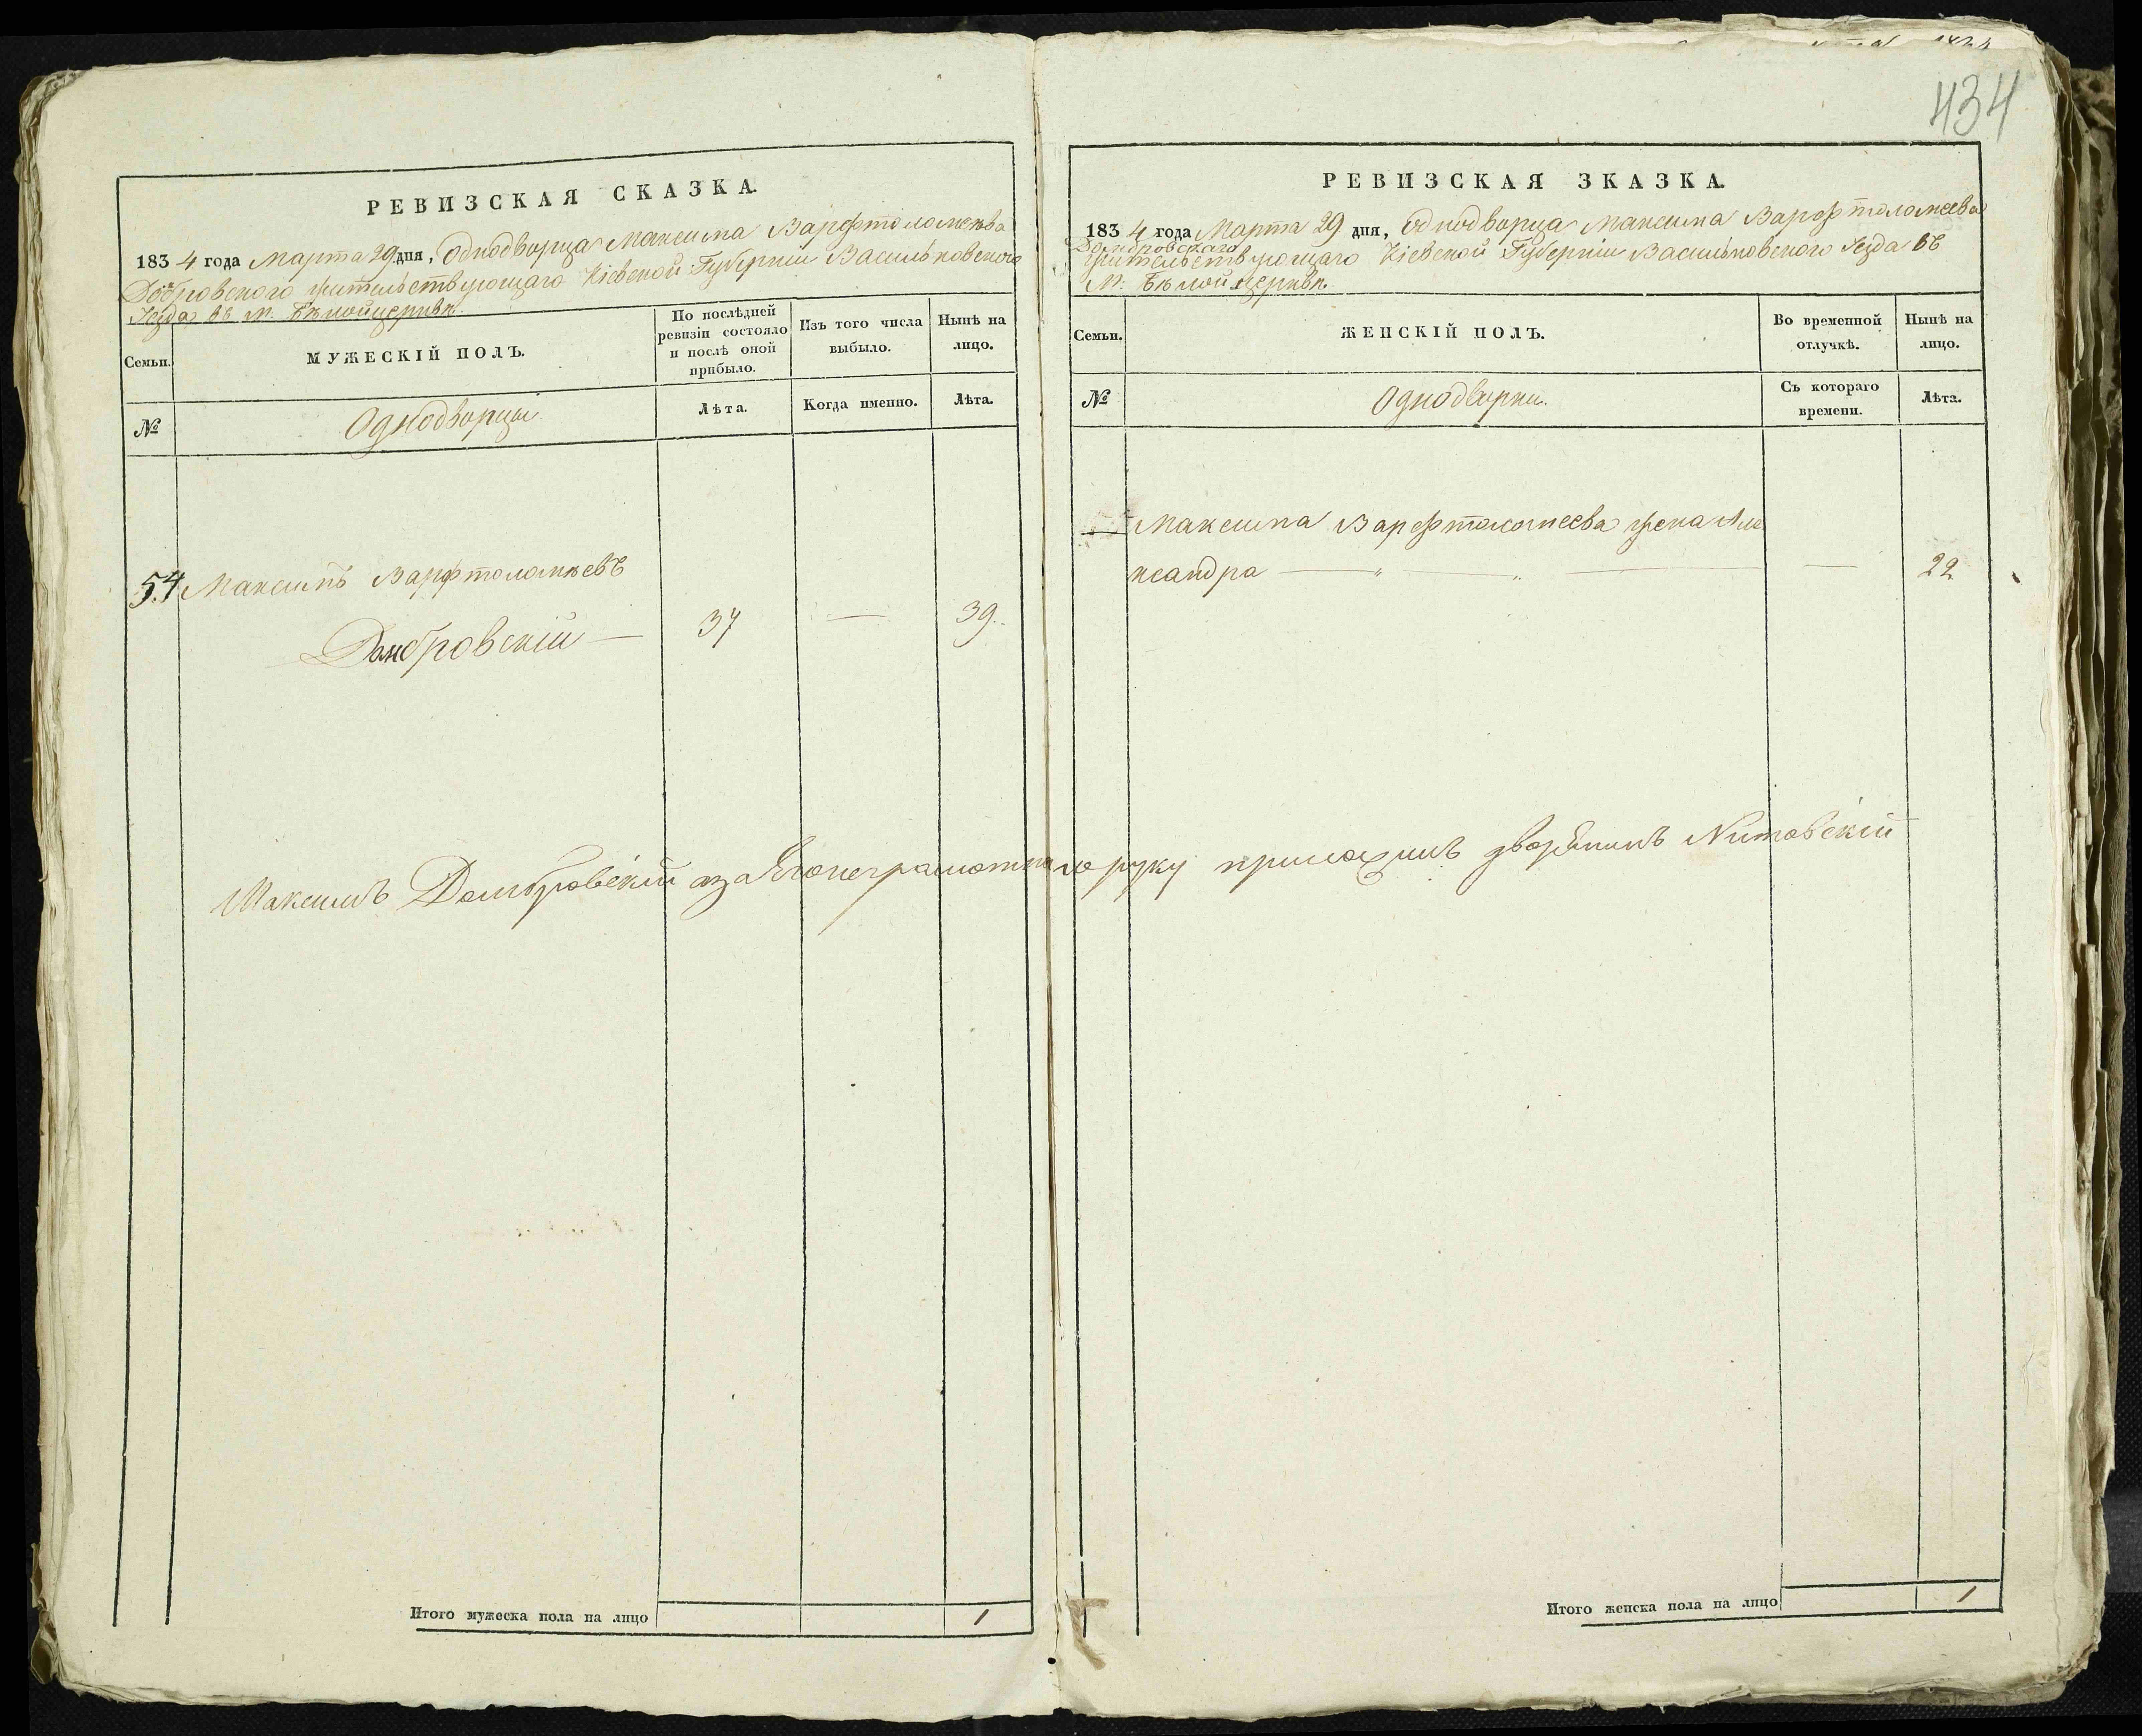 434
РЕВИЗСКАЯ СКАЗКА.
1834 года Марта 29 дня, Однодворца Максима Варфтоломеѣва
Домбровского жительствующаго Кіевской Губерніи Васильковского
Уезда въ М: Бѣлойцерквѣ.
Семьи.
МУЖЕСКІЙ ПОЛЪ.
По послѣдней
ревизіи состояло
и послѣ оной
прибыло.
Изъ того числа
выбыло.
Нынѣ на
лицо.
№
Однодворцы
Лѣта.
Когда именно.
Лѣта.
54 Максимъ Варфтоломѣевъ
Домбровскій — 37 — 39.
Итого мужеска пола на лицо 1
РЕВИЗСКАЯ ЗКАЗКА.
1834 года Марта 29 дня, Однодворца Максима Варфтоломеева
Домбровскаго
жительствующаго Кіевской Губерніи Васильковского Уезда въ
М: Бѣлой церквѣ.
Семьи.
ЖЕНСКІЙ ПОЛЪ.
Во временной
отлучкѣ.
Нынѣ на
лицо.
№
Однодворки.
Съ котораго
времени.
Лѣта.
Максима Варфтоломеева жена Але
ксандра — " — " — — 22
Максимъ Домбровскій аза Егонеграмотнаго руку приложилъ дворянинъ
Итого женска пола на лицо 1